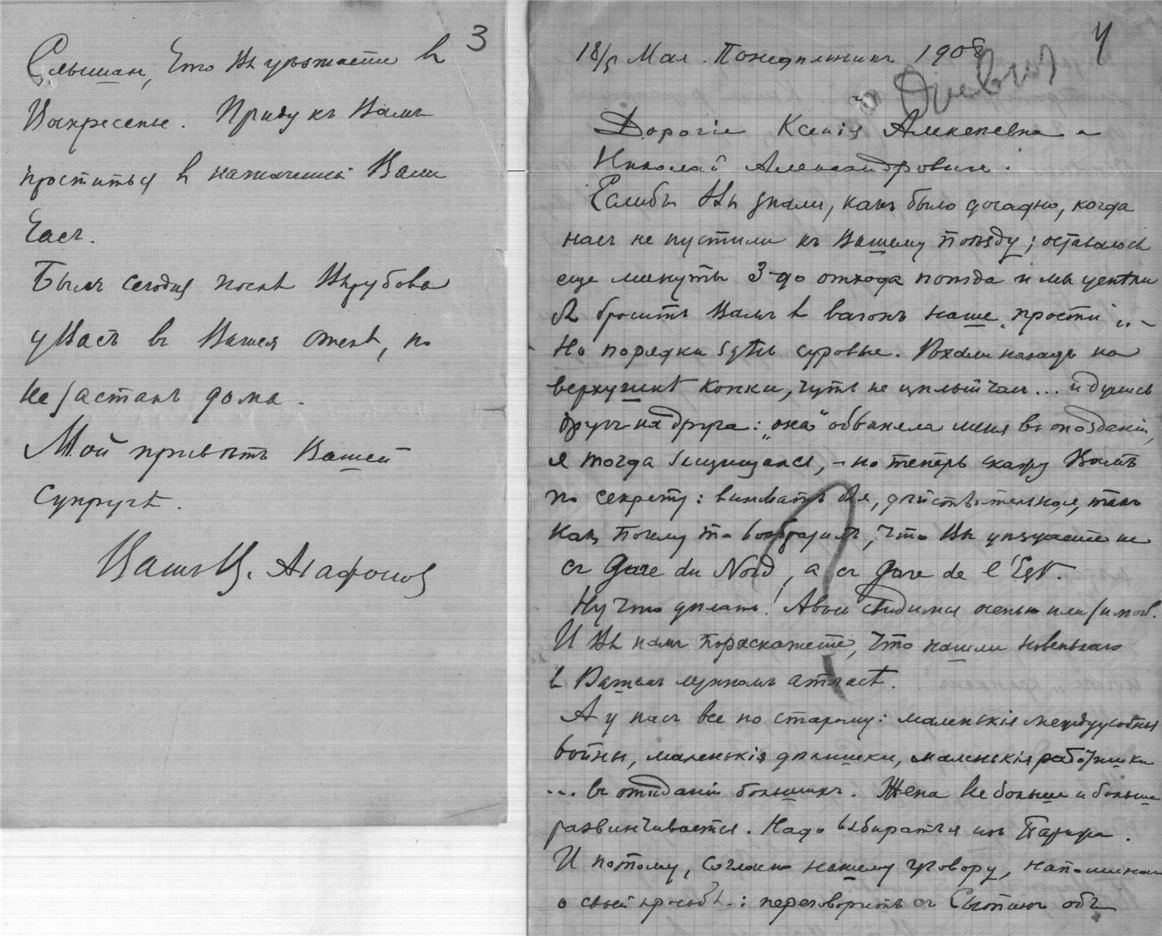 3
Слышал, что Вы уезжаете в
Воскресенье. Приду къ Вамъ
проститься въ назначенный Вами
часъ.
Былъ сегодня послѣ Вырубова
у Васъ въ Вашем отелѣ, но
не засталъ дома.
Мой привѣтъ Вашей
супругѣ.
Вашъ В. Агафоновъ
4
18/5 Мая. Понедѣльникъ 1908
Дорогіе Ксенія Алексѣевна и
Николай Александровичъ.
Еслибы Вы знали, какъ было досадно, когда
насъ не пустили къ Вашему поѣзду; оставалось
еще минуты 3 до отхода поѣзда и мы успѣли
бы бросить Вамъ въ вагонъ наше „прости"..
Но порядки здѣсь суровые. Поѣхали назадъ на
верхушкѣ конки, чуть не цѣлый час... и дулись
другъ на друга: „она" обвиняла меня въ опозданіи,
я тогда защищался, – но теперь скажу Вамъ
по секрету: виноватъ былъ я, дѣйствительно, такъ
какъ почему то вообразилъ, что Вы уѣзжаете не
съ Gare du Nord, а съ Gare de l'Est.
Ну что дѣлать! Авось свидимся осенью или зимой.
И Вы намъ пораскажете, что нашли новенькаго
въ Вашемъ лунномъ атласѣ.
А у насъ все по старому: маленькія междуусобныя
войны, маленькія дѣлишки, маленькія работишки
... въ ожиданіи большихъ. Жена все больше и больше
развинчивается. Надо выбираться изъ Парижа.
И потому, согласно нашему уговору, напоминаю
о своей просьбѣ: переговорить съ Сытинымъ объ